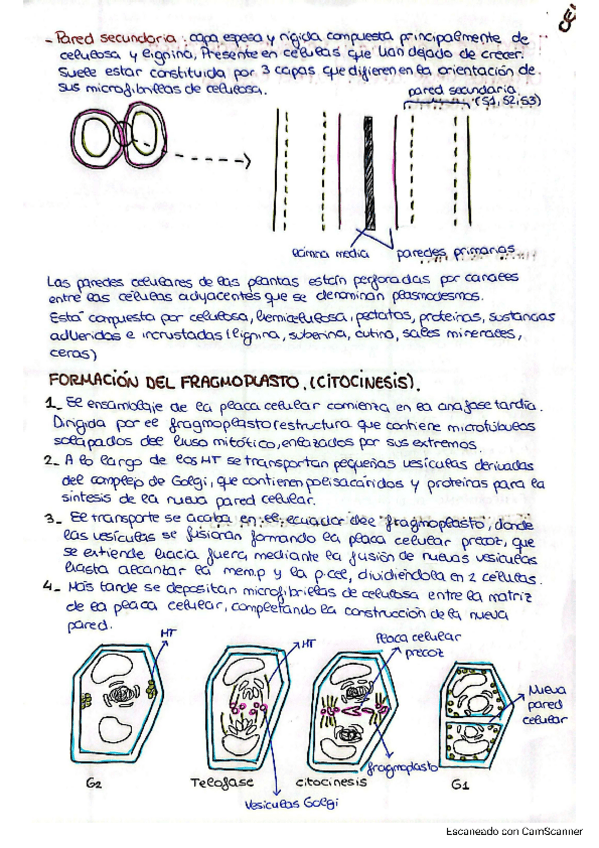 CEL
- Pared secundaria: capa espesa y rígida compuesta principalmente de
celulosa y lignina, Presente en células que han dejado de crecer.
Suele estar constituida por 3 capas que difieren en la orientación de
sus microfibrillas de celulosa.
pared secundaria
(S1, S2, S3)
lámina media
paredes primarias
Las paredes celulares de las plantas están perforadas por canales
entre las células adyacentes que se denominan plasmodesmos.
Está compuesta por celulosa, hemicelulosa, pectatos, proteínas, sustancias
adheridas e incrustadas (lignina, suberina, cutina, sales minerales,
ceras)
FORMACIÓN DEL FRAGMOPLASTO. (CITOCINESIS).
1_ El ensamblaje de la placa celular comienza en la anafase tardía.
Dirigida por el fragmoplasto (estructura que contiene microtúbulos
solapados del huso mitótico, enlazados por sus extremos.
2_ A lo largo de los HT se transportan pequeñas vesículas derivadas
del complejo de Golgi, que contienen polisacáridos y proteínas para la
síntesis de la nueva pared celular.
3_ El transporte se acaba en el ecuador del fragmoplasto, donde
las vesículas se fusionan formando la placa celular precoz, que
se extiende hacia fuera, mediante la fusión de nuevas vesículas
hasta alcanzar la mem.p y la p.cel, dividiéndola en 2 células.
4_ Más tarde se depositan microfibrillas de celulosa entre la matriz
de la placa celular, completando la construcción de la nueva
pared.
HT
HT
Placa celular
precoz
Nueva
pared
celular
fragmoplasto
G2
Telofase
citocinesis
G1
Vesículas Golgi
Escaneado con CamScanner